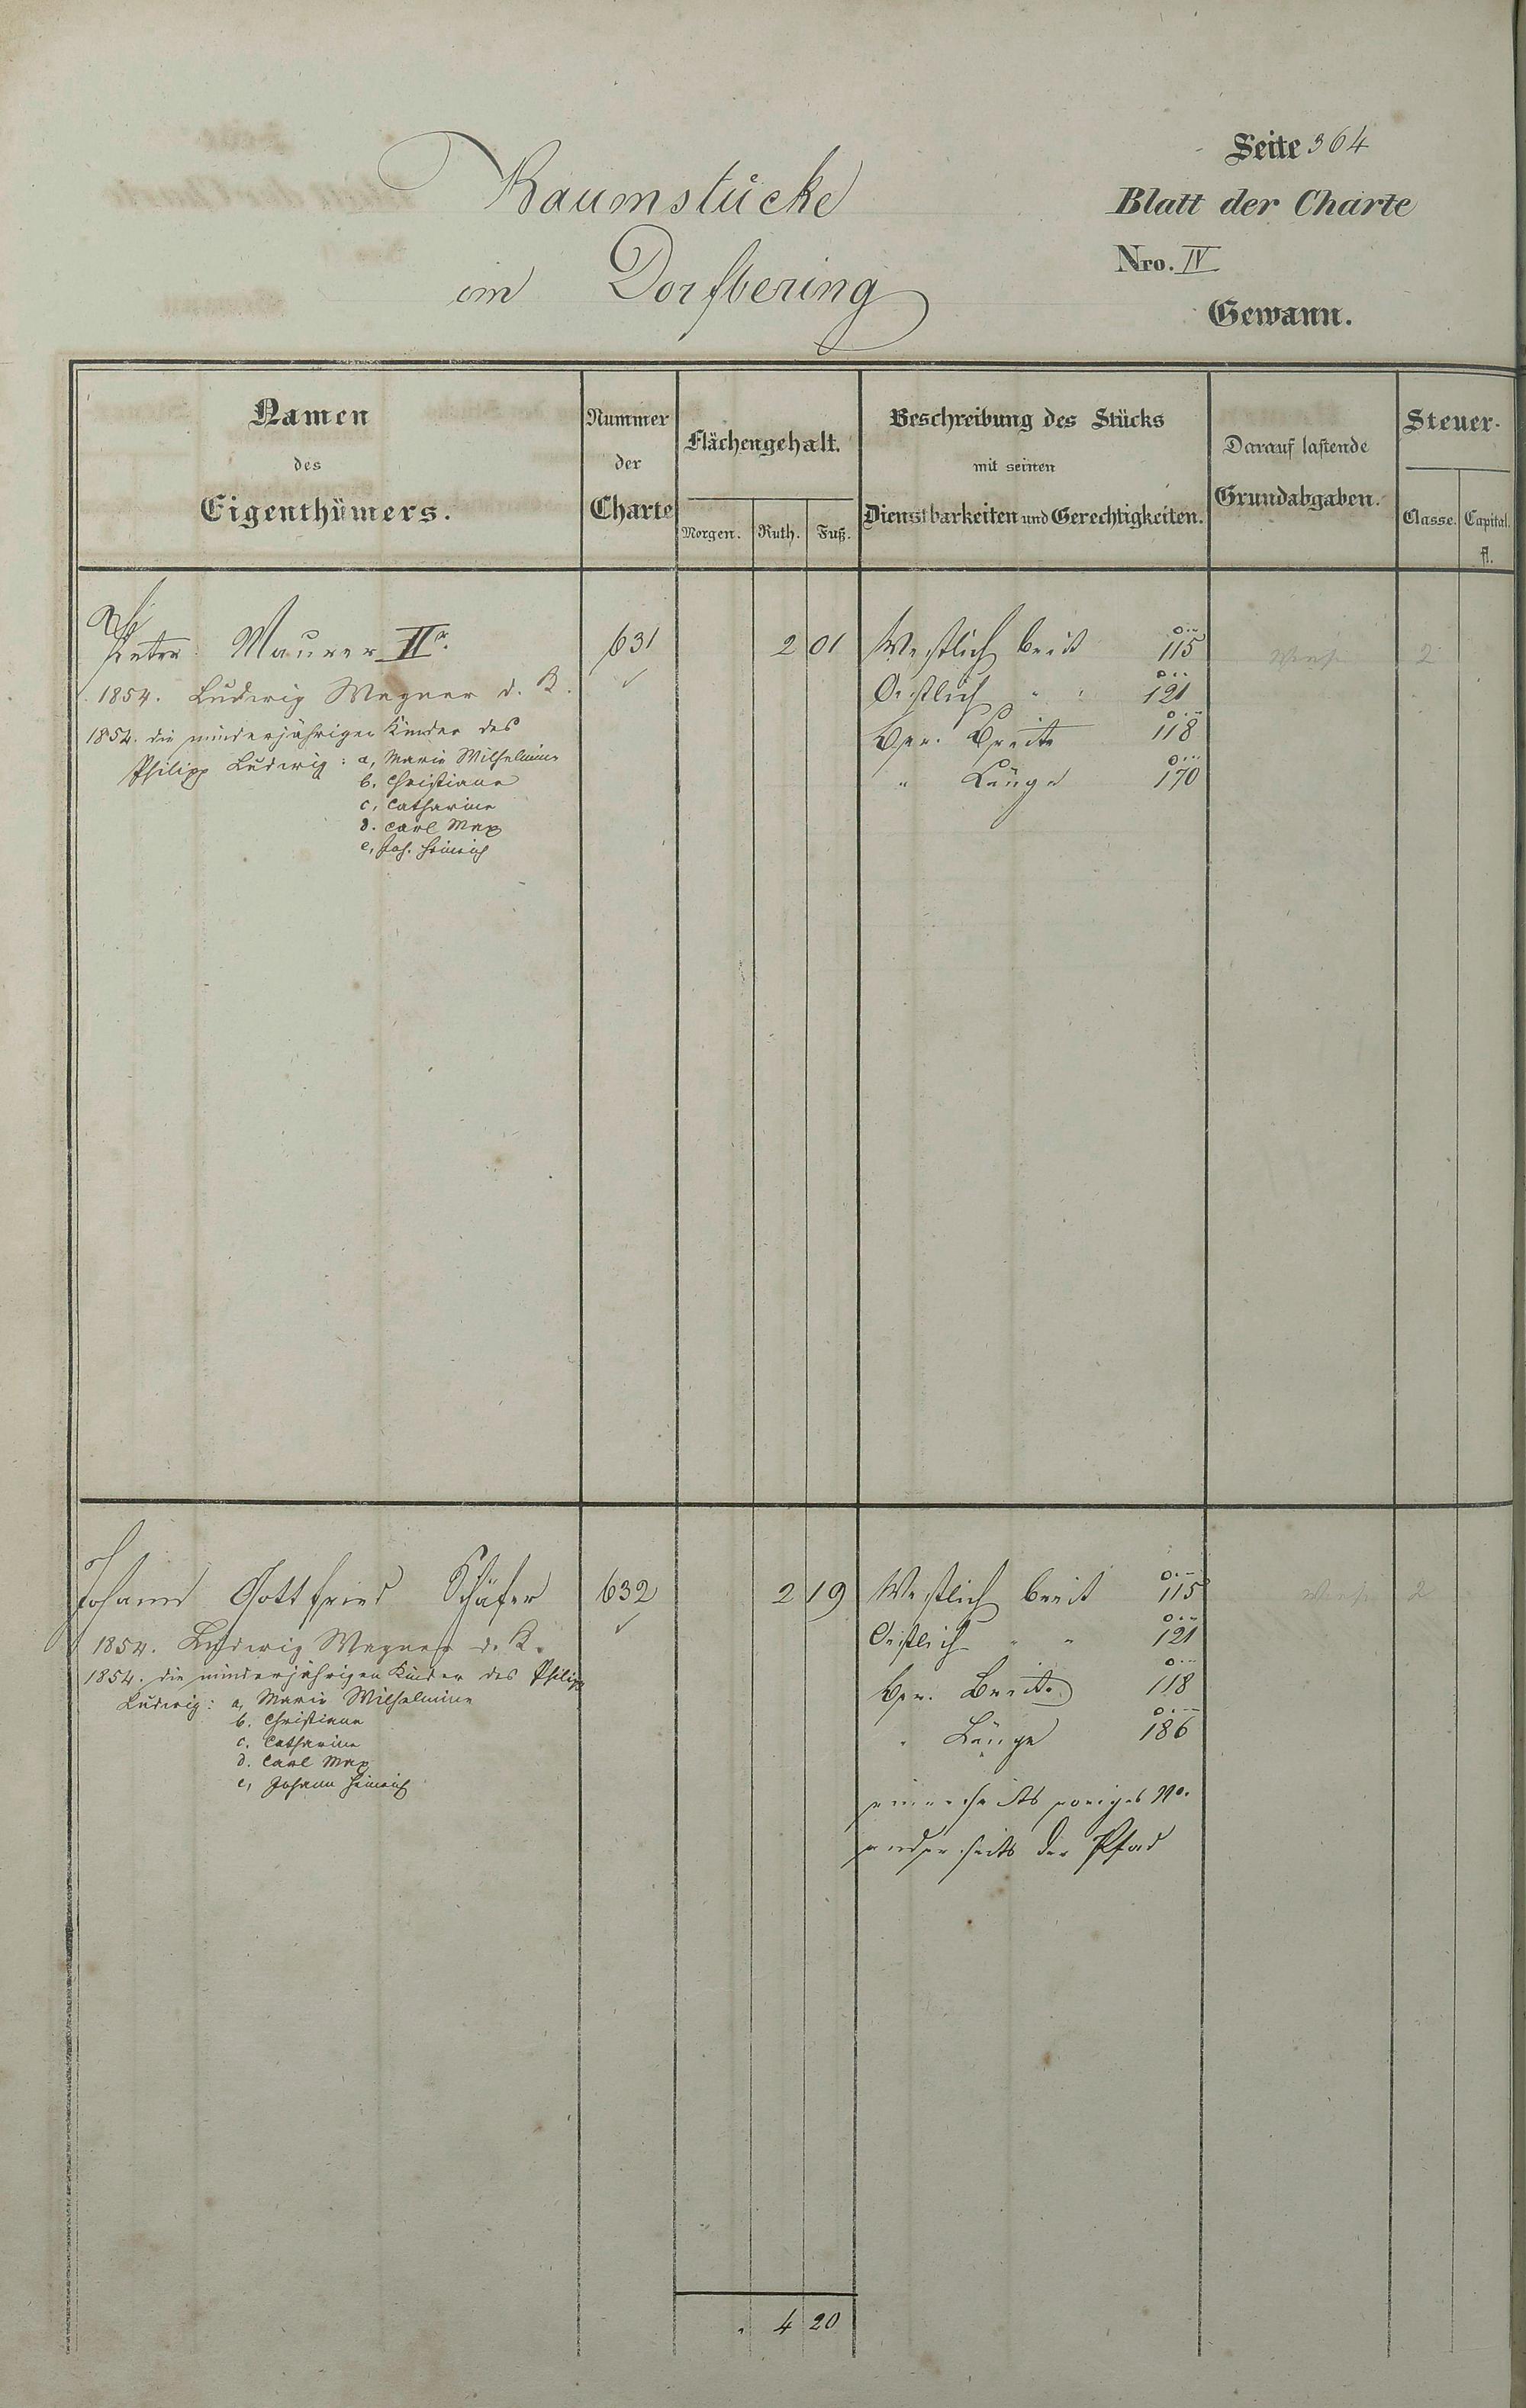 Seite 364
Baumstücke
Blatt der Charte
im Dorfbering
Nro. IV
Gewann.
Namen des Eigenthümers.
Nummer der Charte
Flächengehalt.
Morgen. Ruth. Fuß.
Beschreibung des Stücks mit seinen Dienstbarkeiten und Gerechtigkeiten.
Darauf lastende Grundabgaben.
Steuer-
Classe. Capital. fl.
Peter Maurer IIr. 631 2 01 Westlich breit 115 Wiese 2
1854. Ludwig Wagner d. K. Oestlich " " 121
1854. die minderjährigen Kinder des Ber. Breite 118
Philipp Ludwig: a, Marie Wilhelmine " Länge 170
b. Christiane
c, Catharine
d. Carl Max
e, Joh. Heinrich
Johann Gottfried Schäfer 632 2 19 Westlich breit 115 Wiese 2
1854. Ludwig Wagner d. K. Oestlich " " 121
1854. die minderjährigen Kinder des Philipp Ber. Breite 118
Ludwig: a, Marie Wilhelmine
b. Christiane " Länge 186
c. Catharine
d. Carl Max
e, Johann Heinrich
einerseits voriges No.
anderseits der Pfad
4 20